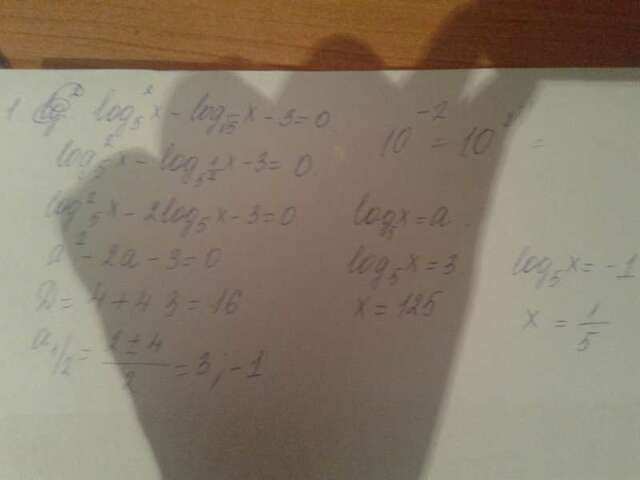 1. log₅²x - log_√5 x - 3 = 0
log₅²x - log_5^(1/2) x - 3 = 0.
log²₅x - 2log₅x - 3 = 0
a² - 2a - 3 = 0
D = 4 + 4 3 = 16
a₁/₂ = (2 ± 4)/2 = 3; -1
10⁻² = 10 =
log₅x = a.
log₅x = 3
x = 125
log₅x = -1
x = 1/5